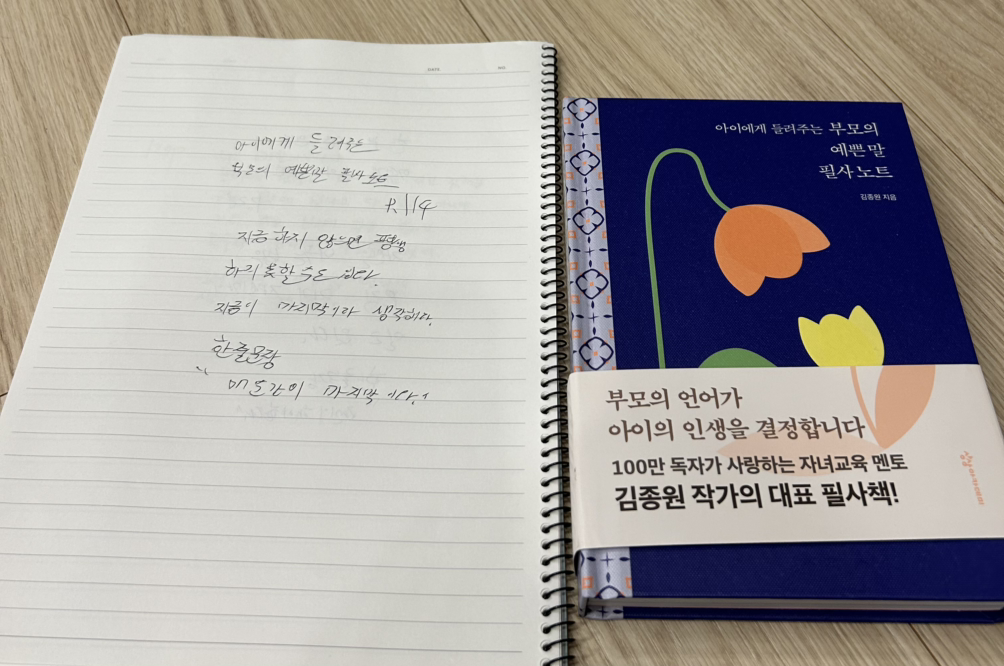 아이에게 들려주는
부모의 예쁜말 필사노트
P.114
지금 하지 않으면 평생
하지 못할 수도 있다.
지금이 마지막이라 생각하라.
한줄문장
"매 순간이 마지막이다."
아이에게 들려주는 부모의
예쁜 말
필사 노트
김종원 지음
부모의 언어가
아이의 인생을 결정합니다
100만 독자가 사랑하는 자녀교육 멘토
김종원 작가의 대표 필사책!
상상아카데미